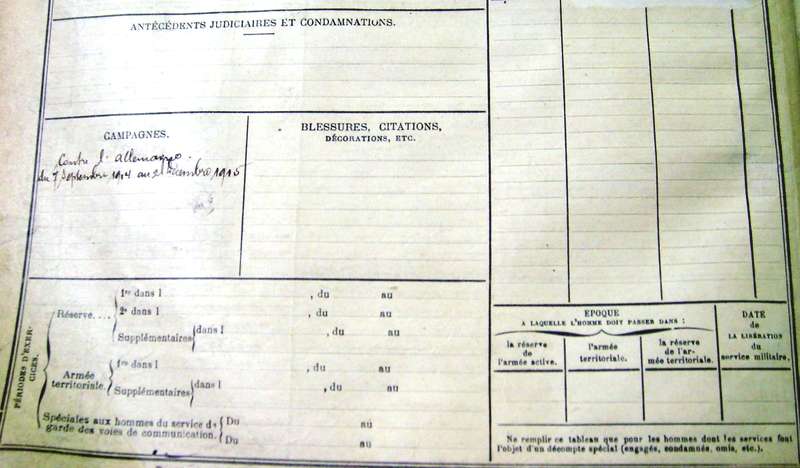 ANTÉCÉDENTS JUDICIAIRES ET CONDAMNATIONS.
CAMPAGNES.
Contre l'allemagne.
du 7 Septembre 1914 au 2 Décembre 1915
BLESSURES, CITATIONS,
DÉCORATIONS, ETC.
PÉRIODES D'EXERCICES.
Réserve....
1re dans l , du au
2e dans l , du au
Supplémentaires dans l , du au
Armée territoriale.
1re dans l , du au
Supplémentaires dans l , du au
Spéciales aux hommes du service de
garde des voies de communication.
Du au
Du au
EPOQUE
A LAQUELLE L'HOMME DOIT PASSER DANS :
la réserve
de
l'armée active.
l'armée
territoriale.
la réserve
de l'ar-
mée territoriale.
DATE
de
LA LIBÉRATION
du
service militaire.
Ne remplir ce tableau que pour les hommes dont les services font
l'objet d'un décompte spécial (engagés, condamnés, omis, etc.).